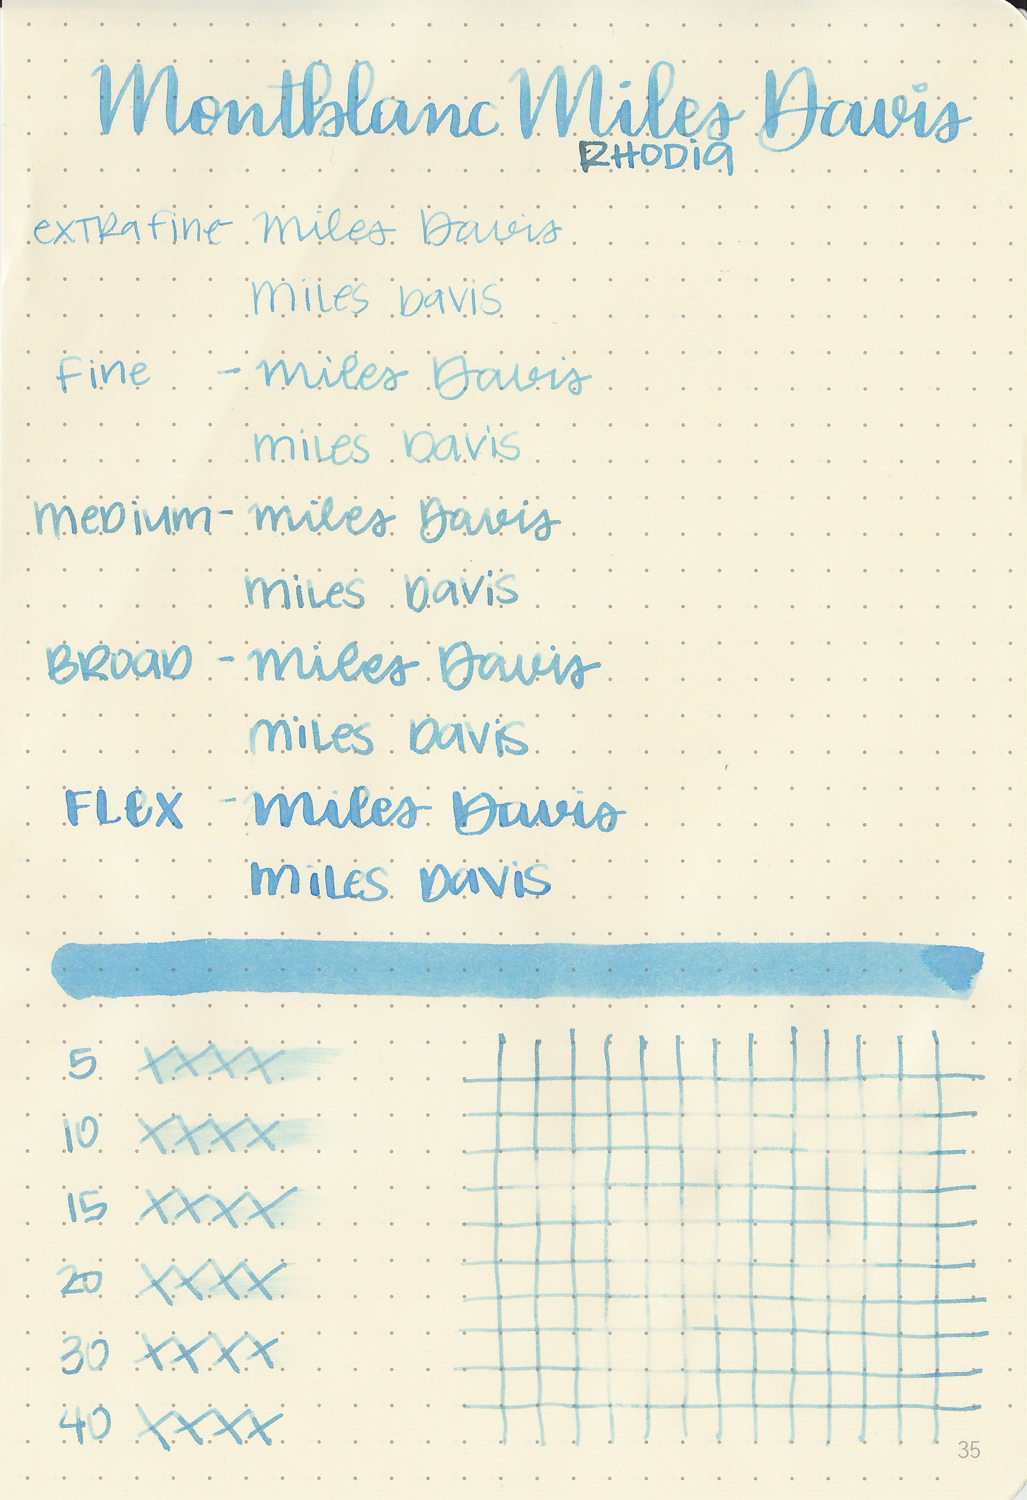 Montblanc Miles Davis
RHODIA
extrafine - Miles Davis
miles Davis
Fine - Miles Davis
miles Davis
MeDium - Miles Davis
miles Davis
BROAD - Miles Davis
miles Davis
FLEX - Miles Davis
miles Davis
5 XXXX
10 XXXX
15 XXXX
20 XXXX
30 XXXX
40 XXXX
35